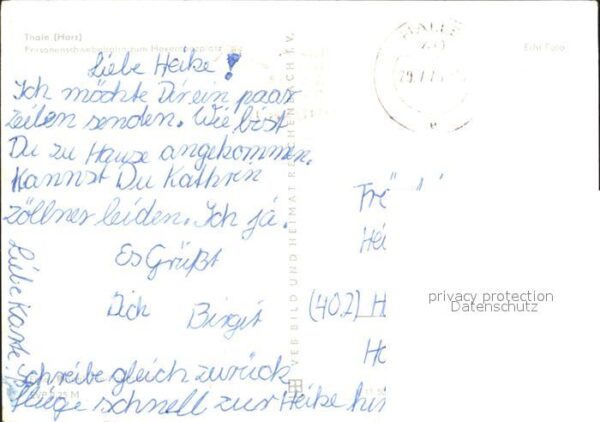 Thale (Harz)
Personenschwebebahn zum Hexentanzplatz
Echt Foto
HALLE
Liebe Heike!
Ich möchte Dir ein paar
Zeilen senden. Wie bist
Du zu Hause angekommen.
Kannst Du Kathrin
Zöllner leiden. Ich ja.
Es Grüßt
Dich Birgit
Liebe Karte.
Schreibe gleich zurück
fliege schnell zur Heike hin
VEB BILD UND HEIMAT REICHENBACH I.V.
Frö
Hei
(402) H
Ha
privacy protection
Datenschutz